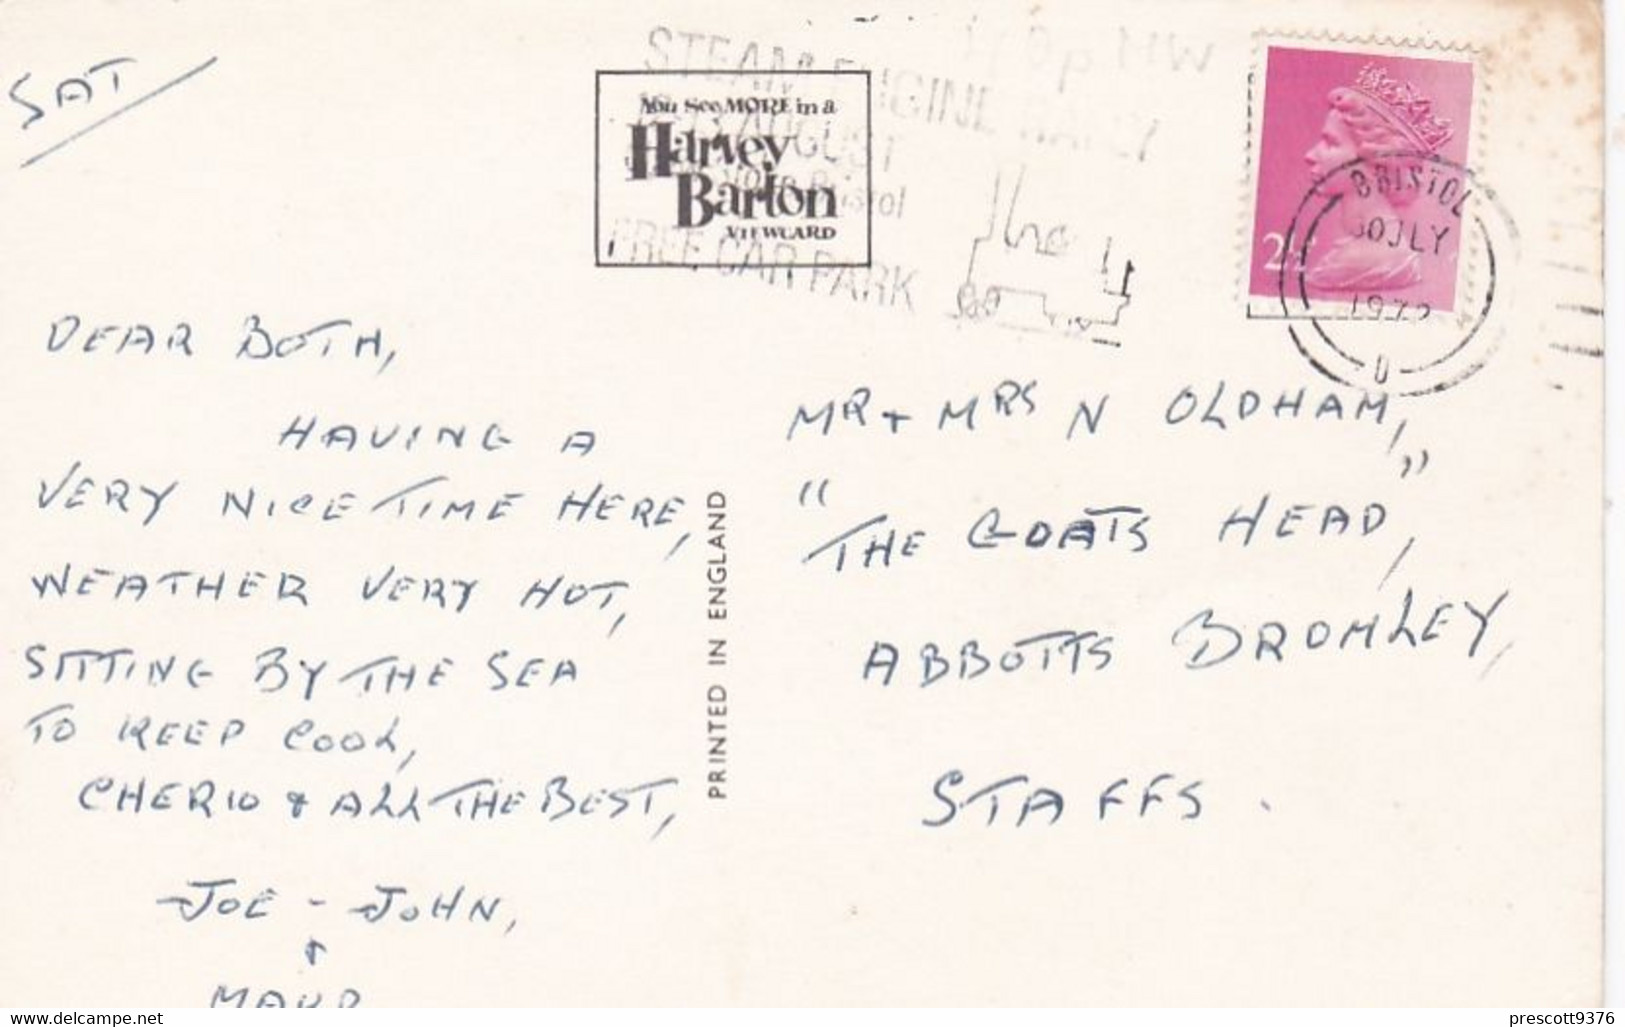 SAT
STEAM ENGINE RALLY
AUGUST
Bristol
FREE CAR PARK
You See MORE in a
Harvey
Barton
VIEWCARD
BRISTOL
30 JLY
1972
U
2½
DEAR BOTH,
HAVING A
VERY NICE TIME HERE,
WEATHER VERY HOT,
SITTING BY THE SEA
TO KEEP COOL,
CHERIO & ALL THE BEST,
JOE - JOHN,
&
PRINTED IN ENGLAND
MR + MRS N OLDHAM,
"THE GOATS HEAD,"
ABBOTTS BROMLEY,
STAFFS.
www.delcampe.net
prescott9376